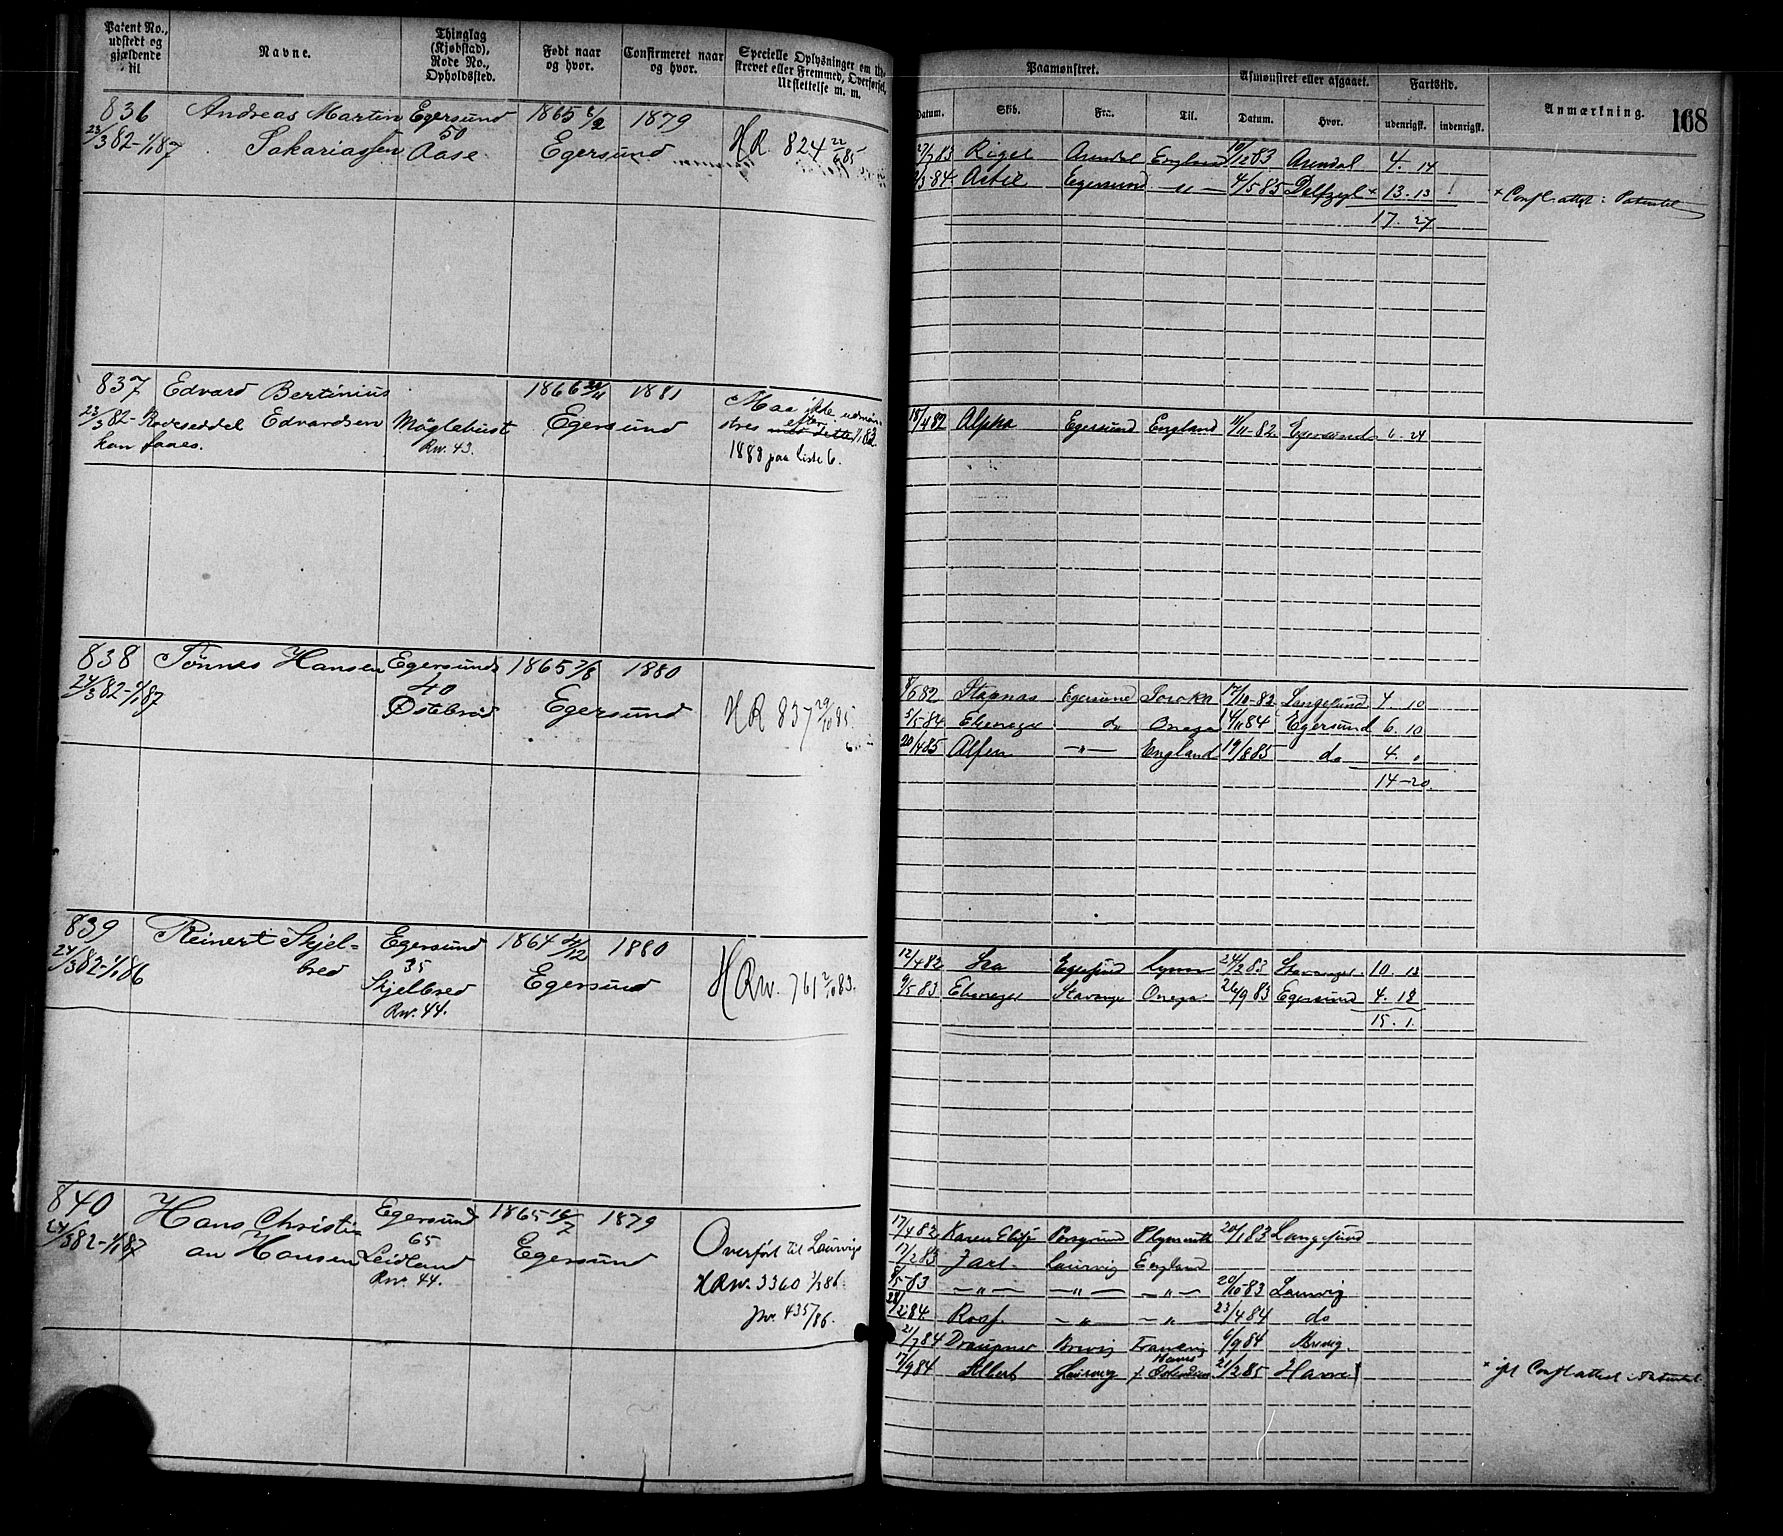 Patent No., udstedt og gjældende til
Navne.
Thinglag (Kjøbstad), Rode No., Opholdssted.
Født naar og hvor.
Confirmeret naar og hvor.
Specielle Oplysninger om
strevet eller Fremmed, Overførsel,
Udslettelse m. m.
Paamønstret.
Afmønstret eller afgaaet.
Fartstid.
Anmærkning.
168
Datum. Skib. Fra. Til. Datum. Hvor. udenrigsk. indenrigsk.
836 Andreas Martin Egersund 1865 6/2 1879
23/3 82-1/1 87 Sakariassen 50 Aase Egersund HR. 824 22/6 85
27/7 83 Rigel Arendal England 10/12 83 Arendal 4. 14
3-84 Astil Egersund — " — 4/5 85 Delfzyl × 13. 13
17. 27
837 Edvard Bertinius 1866 29/11 1881
23/3 82- Rodeseddel Edvardsen Møglebust Egersund
kan faaes. Rw. 43.
Maa ikke udmøn-
stres efter
1888 paa liste 6.
18/4 82 Alpha Egersund England 11/11-82 Egersund 6. 24
838 Tønnes Hansen Egersund 1865 7/8 1880
24/3 82-1/1 87 40 Østebrød Egersund HR 837 29/10 85
6 82 Stapnas Egersund Soroka 17/10-82 Langesund 4. 10
5/5-84 Ebenezer do Onega 14/11 84 Egersund 6. 10
20/4 85 Alfen — " — England 19/8 85 do 4. 0
14-20.
839 Reinert Skjel- Egersund 1864 1880
24/3 82-1/1 86 bred 35 Skjelbred Egersund
Rw. 44.
HRw. 761 83.
12/4 82 Egersund Lynn 24/2 83 Stavanger 10. 13
9/5 83 Ebenezer Stavanger Onega 26/9 83 Egersund 4. 18
15. 1.
840 Hans Christi- Egersund 1865 16/7 1879
24/3 82-1/1 87 an Hansen 65 Leidland Egersund
Rw. 44.
Overført til Laurvigs
HRw. 3360 86
Jnr. 435/86.
17/4 82 Karen Elise Porsgrund Plymouth 20/1 83 Langesund
17/2 83 Jarl Laurvig England
8/5-83 — " — — " — — " — 20/10-83 Laurvig
84 " " 23/4 84 do
21/7 84 Draupner Brevig Frankrig 6/9 84 Brevig
17/9 84 Albert Laurvig 21/2 85 Havre